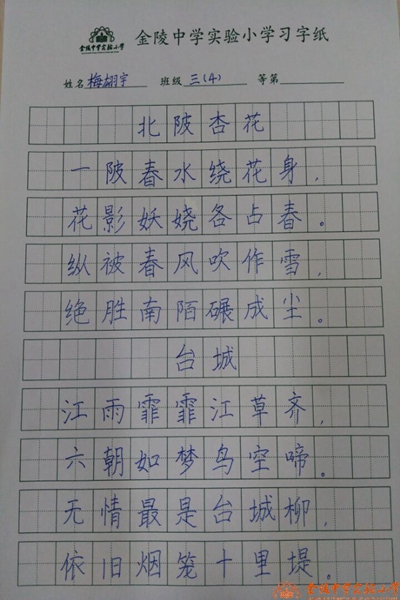 金陵中学实验小学
金陵中学实验小学习字纸
姓名 梅翃宇 班级 三(4) 等第
北陂杏花
一陂春水绕花身,
花影妖娆各占春。
纵被春风吹作雪,
绝胜南陌碾成尘。
台城
江雨霏霏江草齐,
六朝如梦鸟空啼。
无情最是台城柳,
依旧烟笼十里堤。
金陵中学实验小学